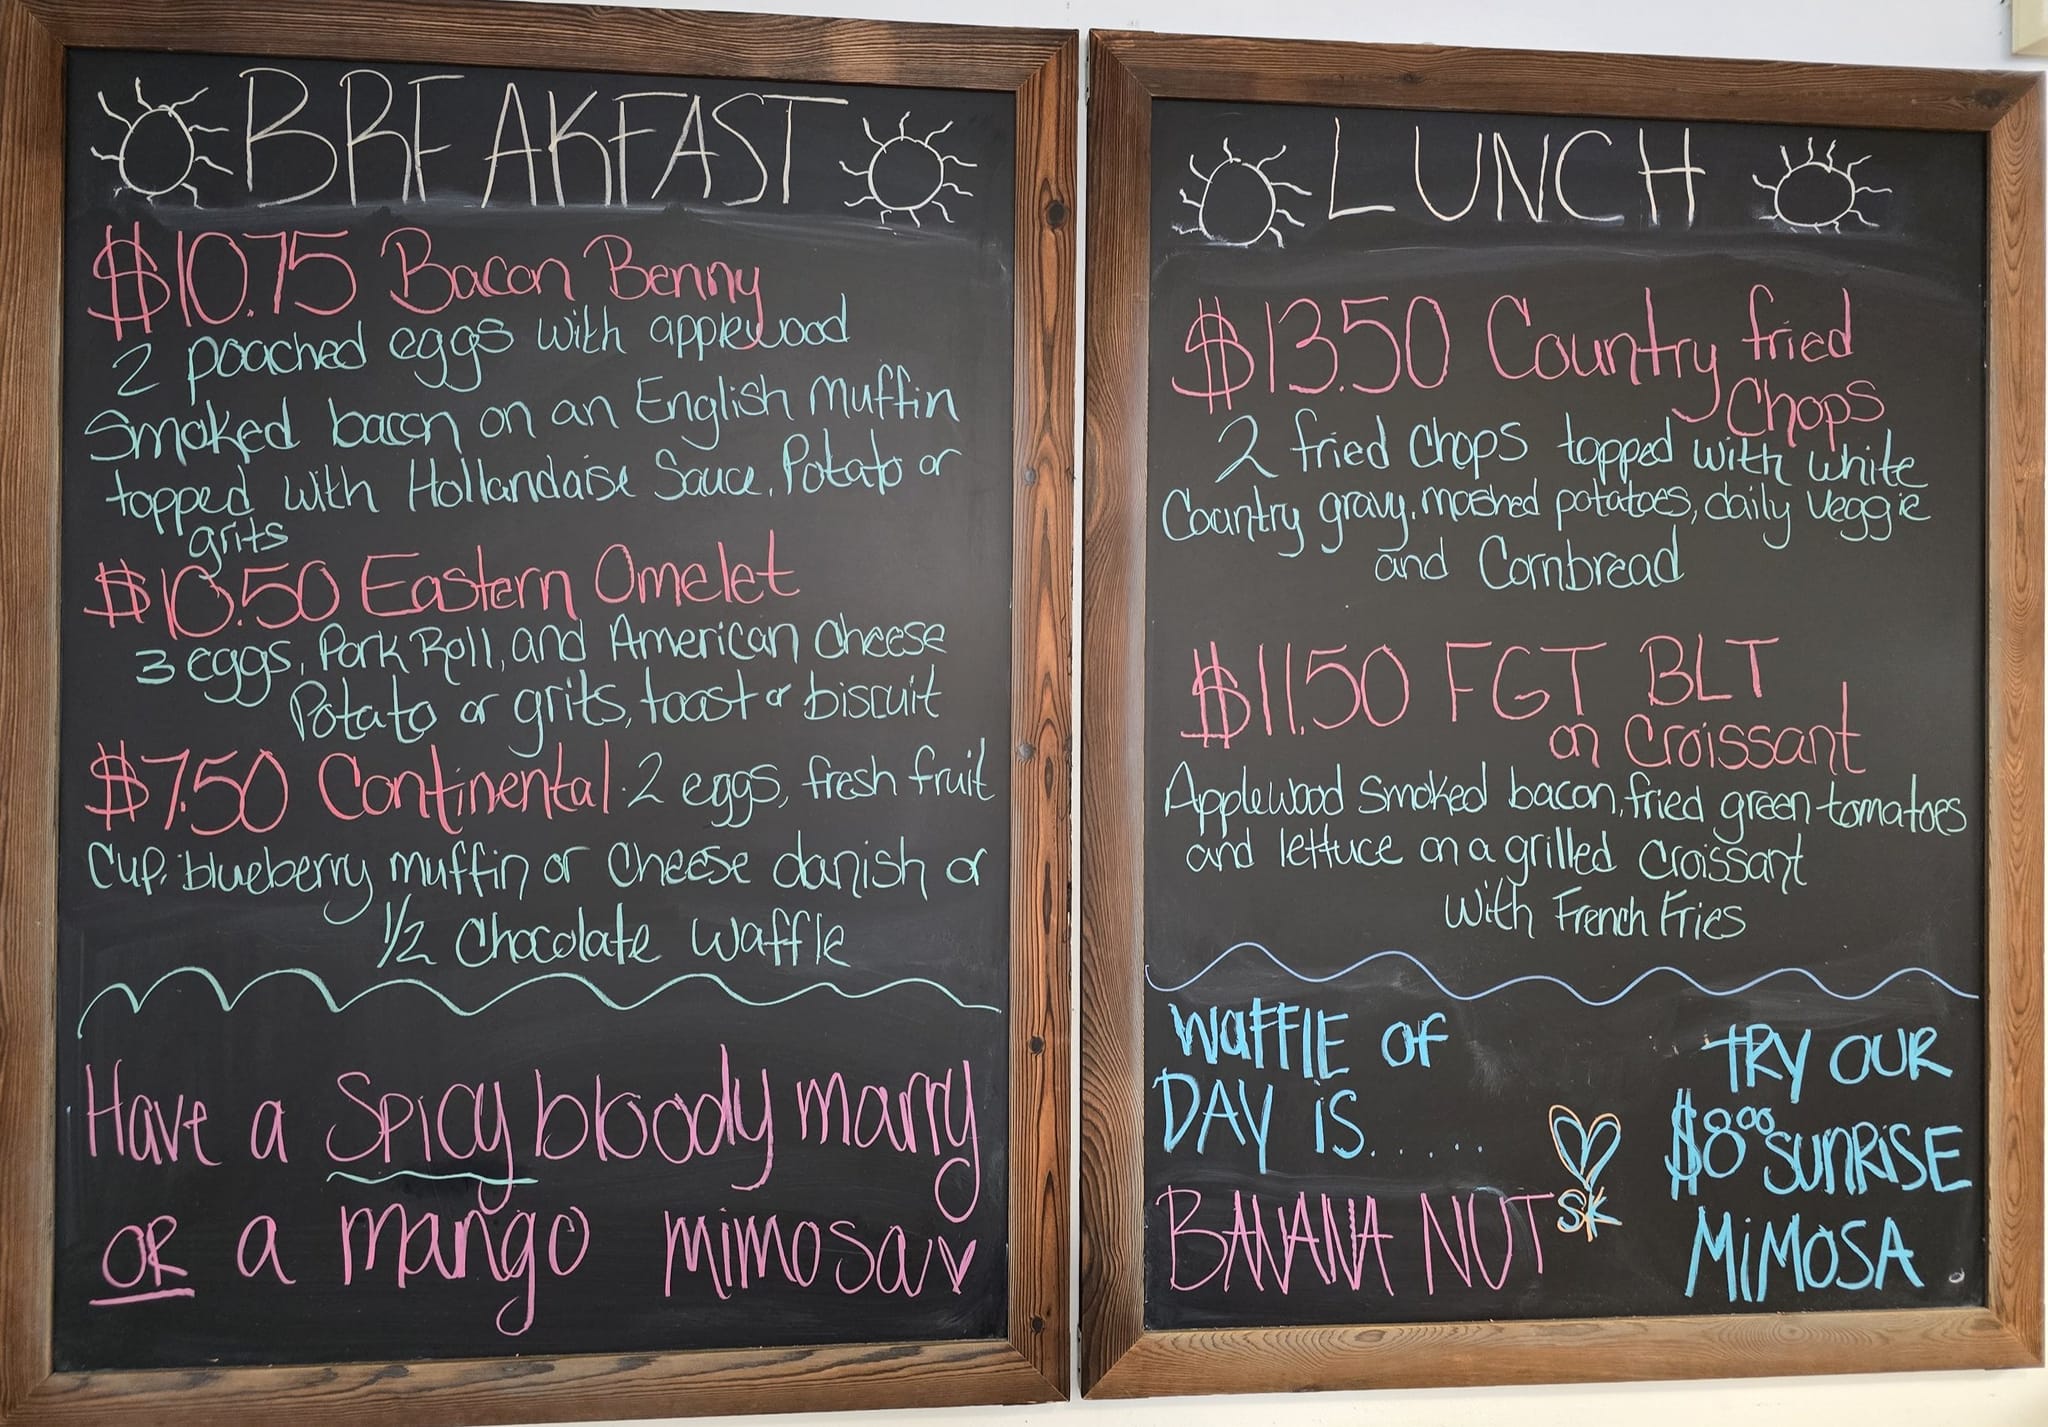 BREAKFAST
$10.75 Bacon Benny
2 poached eggs with applewood
Smoked bacon on an English Muffin
topped with Hollandaise Sauce. Potato or
grits
$10.50 Eastern Omelet
3 eggs, Pork Roll, and American Cheese
Potato or grits, toast or biscuit
$7.50 Continental. 2 eggs, fresh fruit
Cup, blueberry muffin or Cheese danish or
1/2 Chocolate Waffle
Have a Spicy bloody marry
OR a mango mimosa
LUNCH
$13.50 Country fried
Chops
2 fried Chops topped with white
Country gravy, mashed potatoes, daily Veggie
and Cornbread
$11.50 FGT BLT
on Croissant
Applewood Smoked bacon, fried green tomatoes
and lettuce on a grilled Croissant
With French Fries
WAFFLE OF
DAY iS......
BANANA NUT
SK
TRY OUR
$8.00 SUNRiSE
MiMOSA